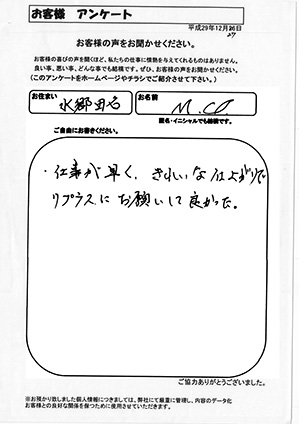 お客様 アンケート
平成29年12月26日
27
お客様の声をお聞かせください。
お客様の喜びの声を聞くほど、私たちの仕事に情熱を与えてくれるものはありません。
良い事、悪い事、どんな事でも結構です。ぜひ、お客様の声をお聞かせください。
(このアンケートをホームページやチラシでご紹介させて下さい。)
お住まい
水郷田名
お名前
M.
匿名・イニシャルでも結構です。
ご自由にお書きください。
・仕事が早く、きれいな仕上がりで
リプラスにお願いして良かった。
ご協力ありがとうございました。
※お預かり致しました個人情報につきましては、弊社にて厳重に管理し、内容のデータ化
お客様との良好な関係を保つために使用させていただきます。